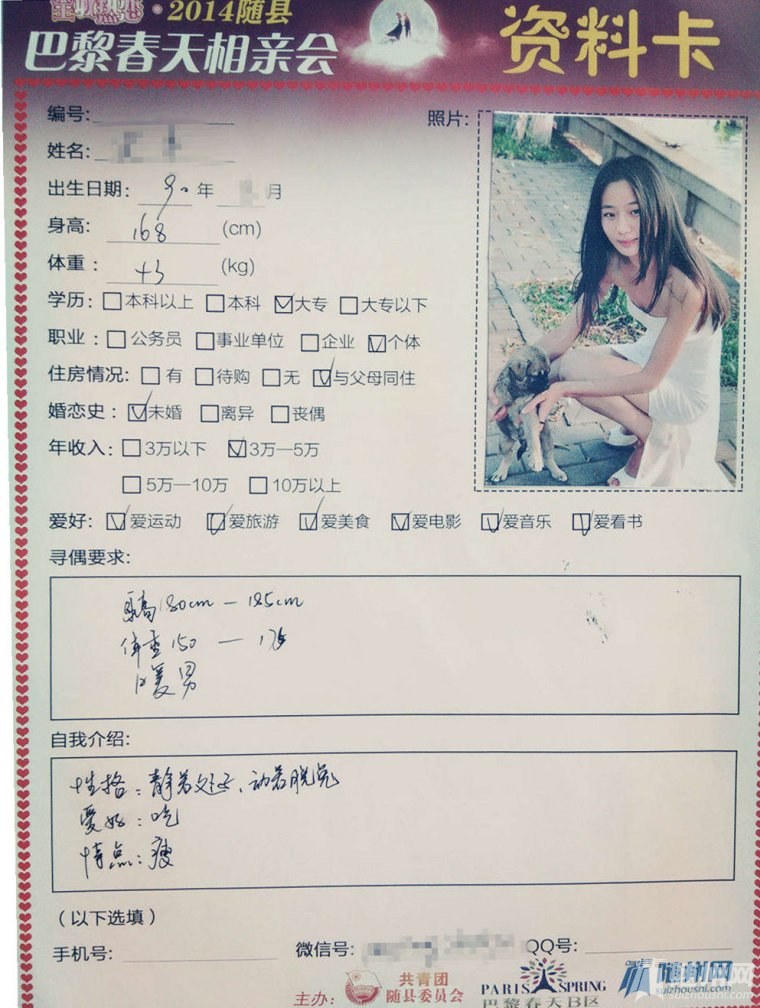 ·2014随县
巴黎春天相亲会 资料卡
编号:
照片:
姓名:
出生日期: 90 年 月
身高: 168 (cm)
体重: 43 (kg)
学历: 本科以上 本科 大专 大专以下
职业: 公务员 事业单位 企业 个体
住房情况: 有 待购 无 与父母同住
婚恋史: 未婚 离异 丧偶
年收入: 3万以下 3万—5万
5万—10万 10万以上
爱好: 爱运动 爱旅游 爱美食 爱电影 爱音乐 爱看书
寻偶要求:
身高180cm — 185cm
体重150 — 175
暖男
自我介绍:
性格: 静若处子、动若脱兔
爱好: 吃
特点: 瘦
(以下选填)
手机号: 微信号: QQ号:
主办: 共青团
随县委员会
PARIS SPRING
巴黎春天B区
随州网
suizhoushi.com